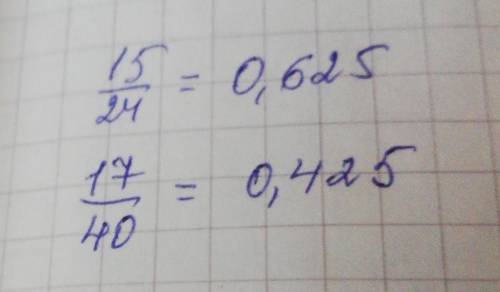 15/24 = 0,625
17/40 = 0,425